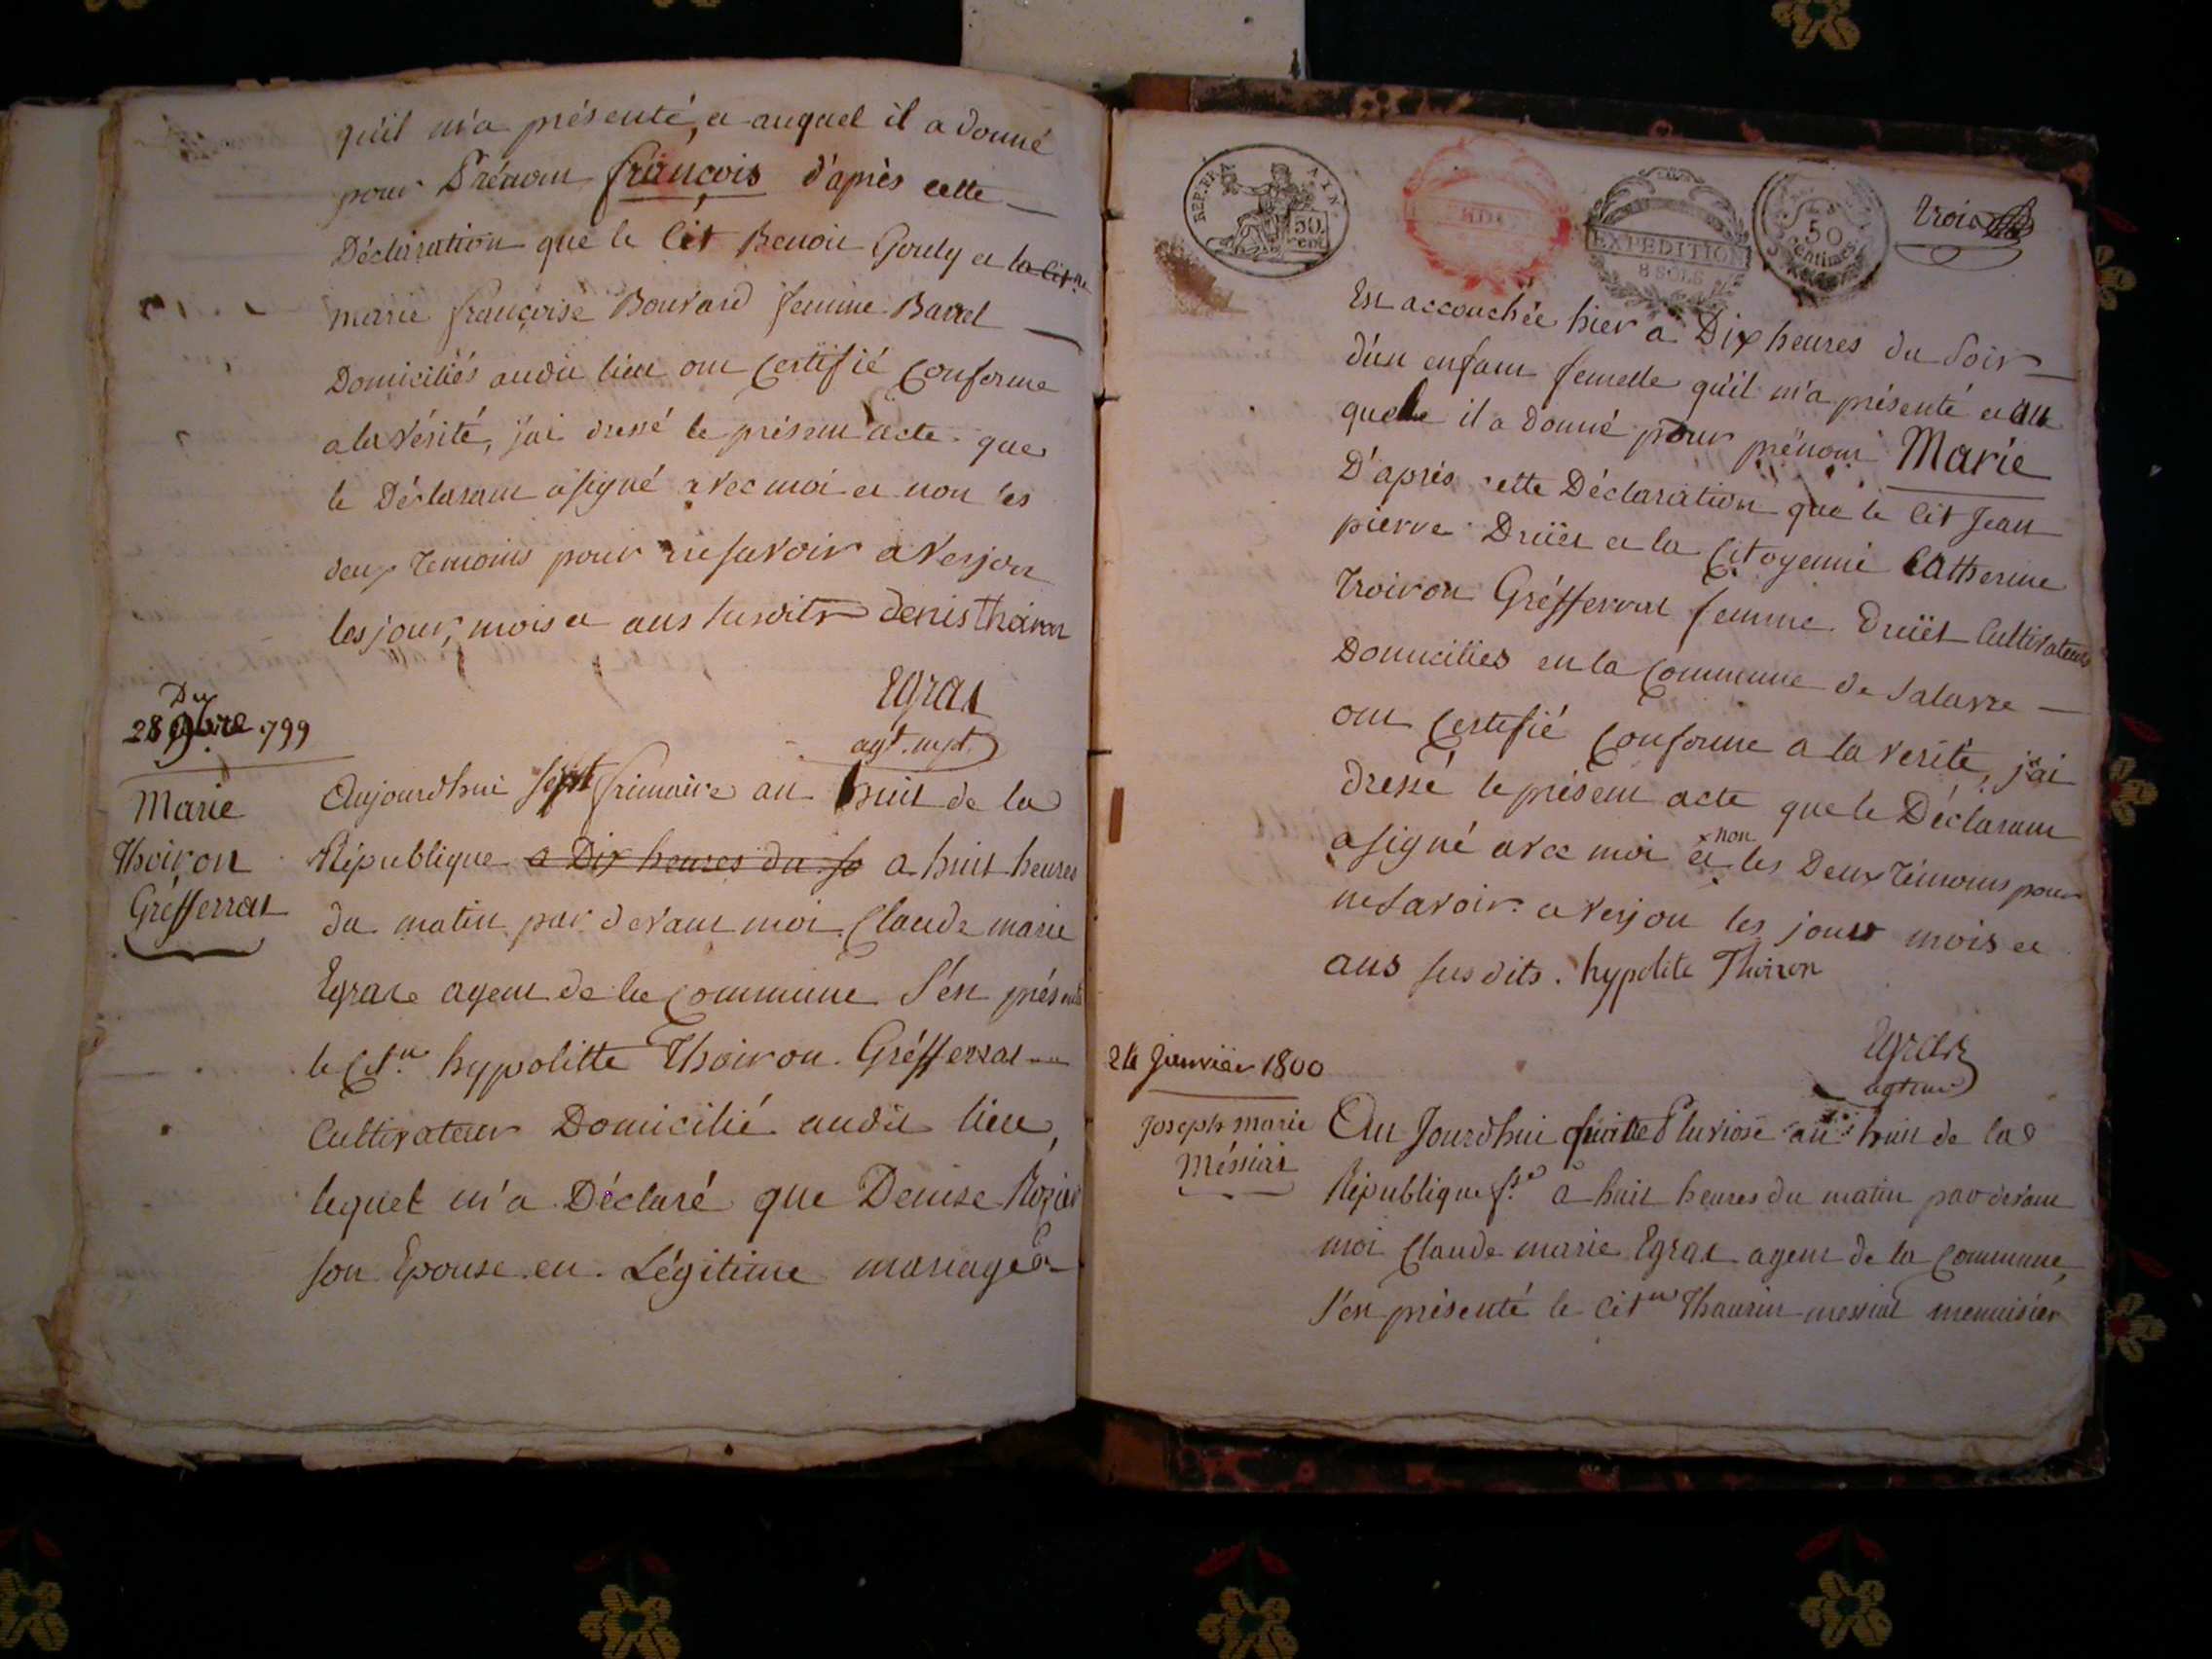 qu'il m'a présenté, et auquel il a donné
pour Prénom françois d'après cette
Déclaration que le Cit Benoit Gouly et la Cit.ne
marie françoise Bouvard femme Barrel
Domiciliés audit lieu ont Certifié Conforme
a la vérité, j'ai dressé le présent acte que
le Déclarant a signé avec moi et non les
deux temoins pour ne savoir a verjon
les jour, mois et ans susdits denis thoiron
Egraz
agt. mpl.
Du
28 9bre 799
Marie
Thoiron
Grésserrat
Aujourdhui sept frimaire an huit de la
République a Dix heures du so a huit heures
du matin par devant moi Claude marie
Egraz agent de la Commune S'est présenté
le Cit.n hypolitte Thoiron Grésserrat
Cultivateur Domicilié audit lieu,
lequel m'a Déclaré que Denise Rozier
son Epouse en Légitime mariage
REP. FRA AIN
50 cent
EXPEDITION
8 SOLS
50
Centimes
trois
Est accouchée hier a Dix heures du Soir
d'un enfant femelle qu'il m'a présenté et au
quelle il a donné pour prénom Marie
D'après cette Déclaration que le Cit Jean
pierre Druët et la Citoyenne Catherine
Troiron Grésserrat femme Druët Cultivateurs
Domiciliés en la Commune de Salavre
ont Certifié Conforme a la vérité, j'ai
dressé le présent acte que le Déclarant
a signé avec moi et non les Deux témoins pour
ne savoir a verjon les jour mois et
ans susdits. hypolite Thoiron
Egraz
24 Janvier 1800
Joseph marie
Méssiat
Au Jourdhui Pluviose an huit de la
République f.se a huit heures du matin par devant
moi Claude marie Egraz agent de la Commune,
S'est présenté le Cit.n Thaurin messiat menuisier